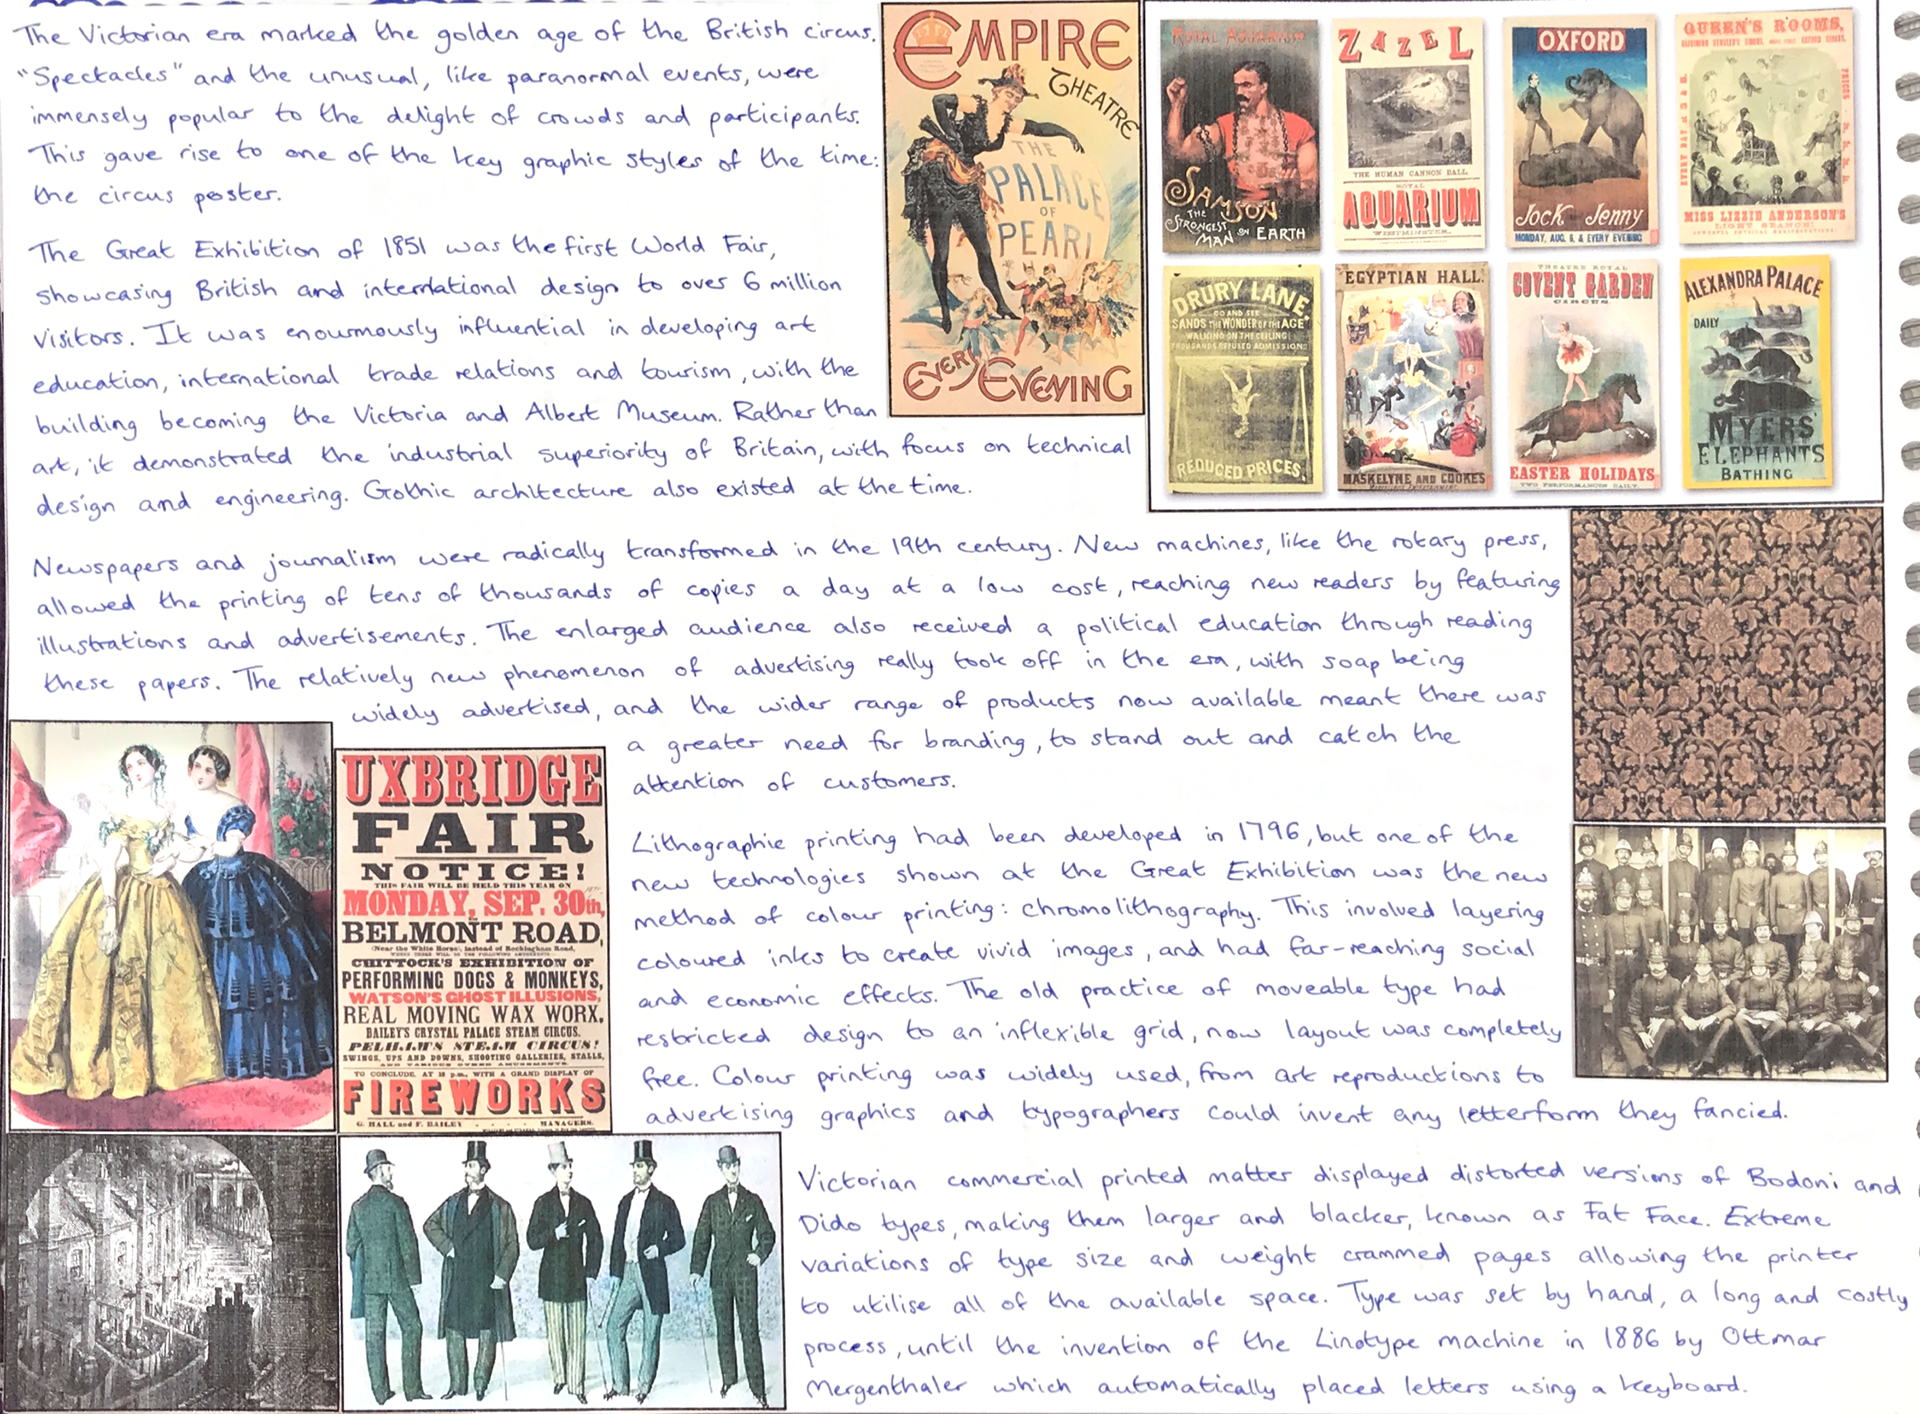 The Victorian era marked the golden age of the British circus.
"Spectacles" and the unusual, like paranormal events, were
immensely popular to the delight of crowds and participants.
This gave rise to one of the key graphic styles of the time:
the circus poster.
The Great Exhibition of 1851 was the first World Fair,
showcasing British and international design to over 6 million
visitors. It was enourmously influential in developing art
education, international trade relations and tourism, with the
building becoming the Victoria and Albert Museum. Rather than
art, it demonstrated the industrial superiority of Britain, with focus on technical
design and engineering. Gothic architecture also existed at the time.
EMPIRE
THEATRE
THE
PALACE
OF
PEARL
EVERY EVENING
ROYAL AQUARIUM
SAMSON
THE
STRONGEST
MAN ON EARTH
ZAZEL
THE HUMAN CANNON BALL
ROYAL
AQUARIUM
WESTMINSTER
OXFORD
Jock and Jenny
MONDAY, AUG. 6, & EVERY EVENING
QUEEN'S ROOMS,
EVERY DAY at 3 & 8.
PRICES
MISS LIZZIE ANDERSON'S
LIGHT SEANCE!
DRURY LANE.
GO AND SEE
SANDS THE WONDER OF THE AGE
WALKING ON THE CEILING!
THOUSANDS REFUSED ADMISSION!
REDUCED PRICES.
EGYPTIAN HALL.
MASKELYNE AND COOKES
THEATRE ROYAL
COVENT GARDEN
CIRCUS
EASTER HOLIDAYS
TWO PERFORMANCES DAILY.
ALEXANDRA PALACE
DAILY
MYERS'
ELEPHANTS
BATHING
Newspapers and journalism were radically transformed in the 19th century. New machines, like the rotary press,
allowed the printing of tens of thousands of copies a day at a low cost, reaching new readers by featuring
illustrations and advertisements. The enlarged audience also received a political education through reading
these papers. The relatively new phenomenon of advertising really took off in the era, with soap being
widely advertised, and the wider range of products now available meant there was
a greater need for branding, to stand out and catch the
attention of customers.
UXBRIDGE
FAIR
NOTICE!
THIS FAIR WILL BE HELD THIS YEAR ON
MONDAY, SEP. 30th,
BELMONT ROAD,
(Near the White Horse), instead of Rockingham Road,
CHITTOCK'S EXHIBITION OF
PERFORMING DOGS & MONKEYS,
WATSON'S GHOST ILLUSIONS,
REAL MOVING WAX WORX.
BAILEY'S CRYSTAL PALACE STEAM CIRCUS.
PELHAM'S STEAM CIRCUS!
SWINGS, UPS AND DOWNS, SHOOTING GALLERIES, STALLS,
AND VARIOUS OTHER AMUSEMENTS.
TO CONCLUDE, AT 10 p.m., WITH A GRAND DISPLAY OF
FIREWORKS
G. HALL and F. BAILEY . . . . MANAGERS.
Lithographic printing had been developed in 1796, but one of the
new technologies shown at the Great Exhibition was the new
method of colour printing: chromolithography. This involved layering
coloured inks to create vivid images, and had far-reaching social
and economic effects. The old practice of moveable type had
restricted design to an inflexible grid, now layout was completely
free. Colour printing was widely used, from art reproductions to
advertising graphics and typographers could invent any letterform they fancied.
Victorian commercial printed matter displayed distorted versions of Bodoni and
Dido types, making them larger and blacker, known as Fat Face. Extreme
variations of type size and weight crammed pages allowing the printer
to utilise all of the available space. Type was set by hand, a long and costly
process, until the invention of the Linotype machine in 1886 by Ottmar
Mergenthaler which automatically placed letters using a keyboard.